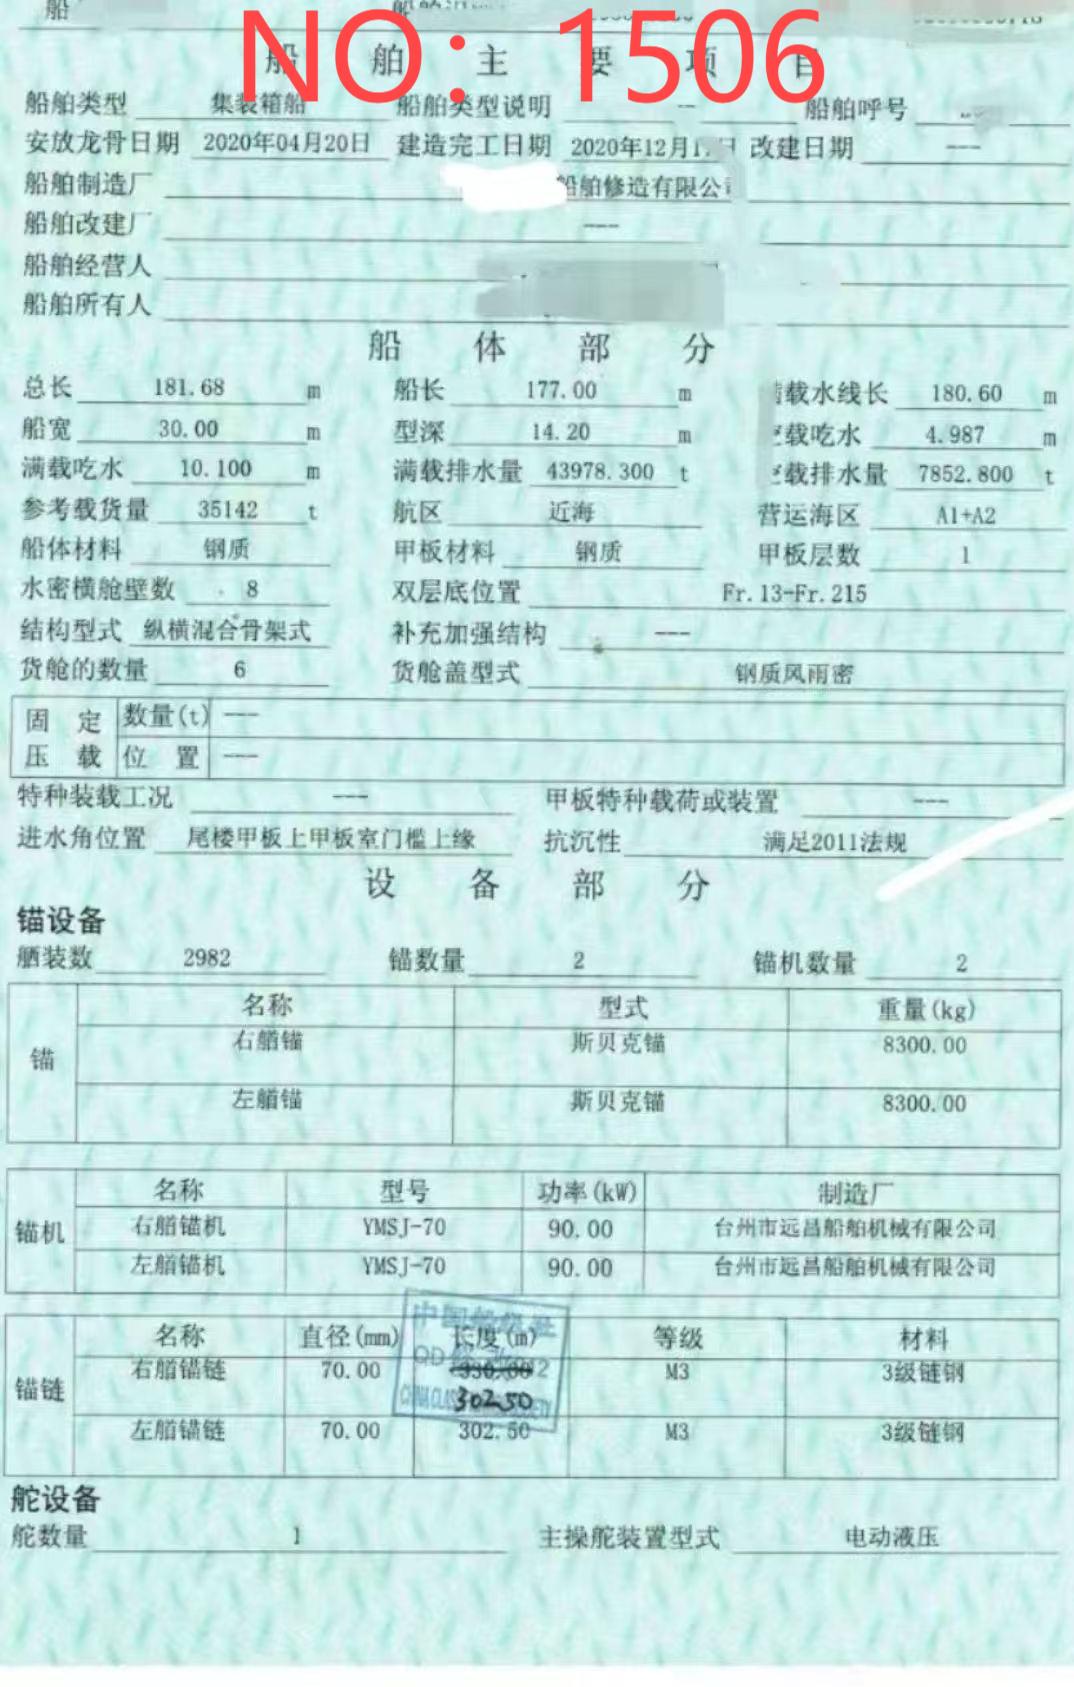 船
NO: 1506
船舶主要项目
船舶类型 集装箱船 船舶类型说明 --- 船舶呼号
安放龙骨日期 2020年04月20日 建造完工日期 2020年12月 改建日期 ---
船舶制造厂 船舶修造有限公司
船舶改建厂 ---
船舶经营人
船舶所有人
船体部分
总长 181.68 m 船长 177.00 m 满载水线长 180.60 m
船宽 30.00 m 型深 14.20 m 空载吃水 4.987 m
满载吃水 10.100 m 满载排水量 43978.300 t 空载排水量 7852.800 t
参考载货量 35142 t 航区 近海 营运海区 A1+A2
船体材料 钢质 甲板材料 钢质 甲板层数 1
水密横舱壁数 8 双层底位置 Fr.13-Fr.215
结构型式 纵横混合骨架式 补充加强结构 ---
货舱的数量 6 货舱盖型式 钢质风雨密
固定压载 数量(t) ---
位置 ---
特种装载工况 --- 甲板特种载荷或装置 ---
进水角位置 尾楼甲板上甲板室门槛上缘 抗沉性 满足2011法规
设备部分
锚设备
舾装数 2982 锚数量 2 锚机数量 2
锚 名称 型式 重量(kg)
右艏锚 斯贝克锚 8300.00
左艏锚 斯贝克锚 8300.00
锚机 名称 型号 功率(kW) 制造厂
右艏锚机 YMSJ-70 90.00 台州市远昌船舶机械有限公司
左艏锚机 YMSJ-70 90.00 台州市远昌船舶机械有限公司
中国船级社
锚链 名称 直径(mm) 长度(m) 等级 材料
右艏锚链 70.00 330.00 M3 3级链钢
302.50
左艏锚链 70.00 302.50 M3 3级链钢
舵设备
舵数量 1 主操舵装置型式 电动液压